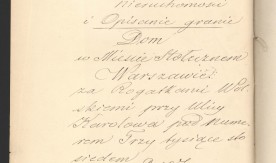 Nieruchomości
i Opisanie granic
Dom
w Mieście Stołecznem
Warszawie
za Rogatkami Wol-
skiemi przy Ulicy
Karolkowa pod Nume-
rem Trzy tysiące sto
siedem